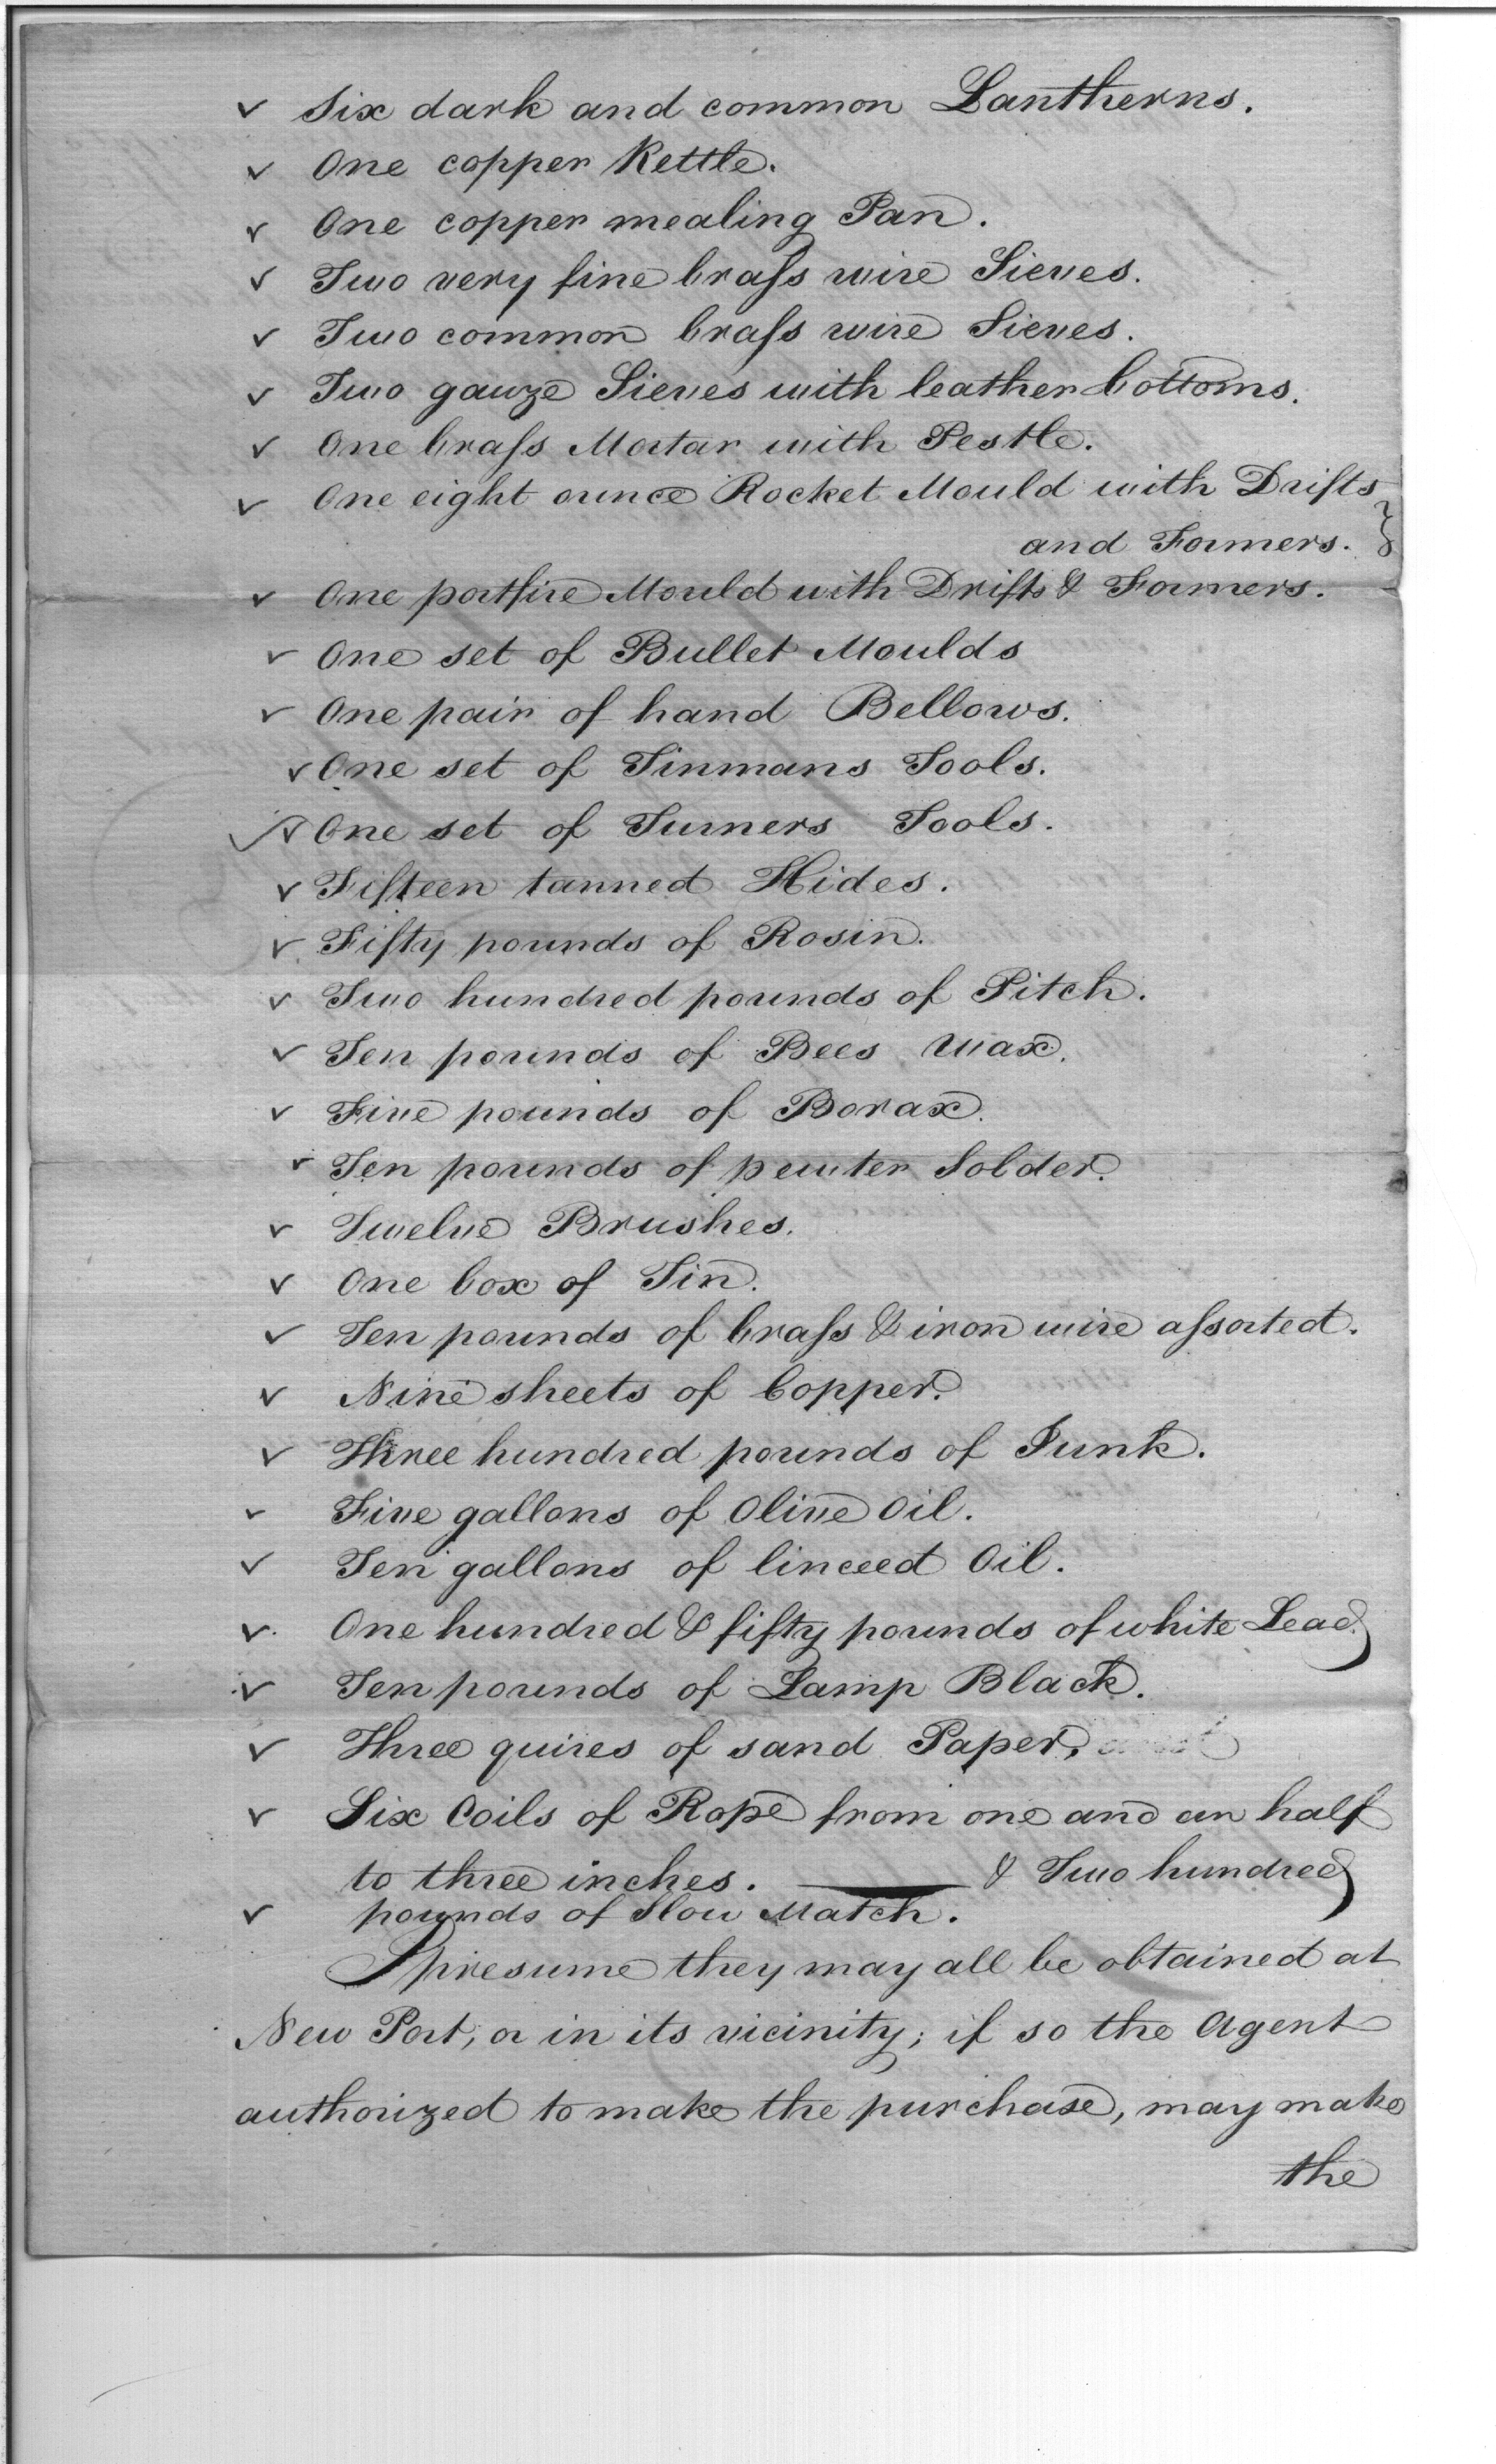 ✓ Six dark and common Lantherns.
✓ One copper Kettle.
✓ One copper mealing Pan.
✓ Two very fine braſs wire Sieves.
✓ Two common braſs wire Sieves.
✓ Two gauze Sieves with leather bottoms.
✓ One braſs Mortar with Pestle.
✓ One eight ounce Rocket Mould with Drifts
and Formers. }
✓ One portfire Mould with Drifts & Formers.
✓ One set of Bullet Moulds
✓ One pair of hand Bellows.
✓ One set of Tinmans Tools.
✓ One set of Turners Tools.
✓ Fifteen tanned Hides.
✓ Fifty pounds of Rosin.
✓ Two hundred pounds of Pitch.
✓ Ten pounds of Bees Wax.
✓ Five pounds of Borax.
✓ Ten pounds of pewter Solder.
✓ Twelve Brushes.
✓ One box of Tin.
✓ Ten pounds of braſs & iron wire aſsorted.
✓ Nine sheets of Copper.
✓ Three hundred pounds of Junk.
✓ Five gallons of Olive Oil.
✓ Ten gallons of linceed Oil.
✓ One hundred & fifty pounds of white Lead.
✓ Ten pounds of Lamp Black.
✓ Three quires of sand Paper,
✓ Six Coils of Rope from one and an half
to three inches. — & Two hundred
✓ pounds of Slow Match.
I presume they may all be obtained at
New Port, or in its vicinity; if so the Agent
authorized to make the purchase, may make
the